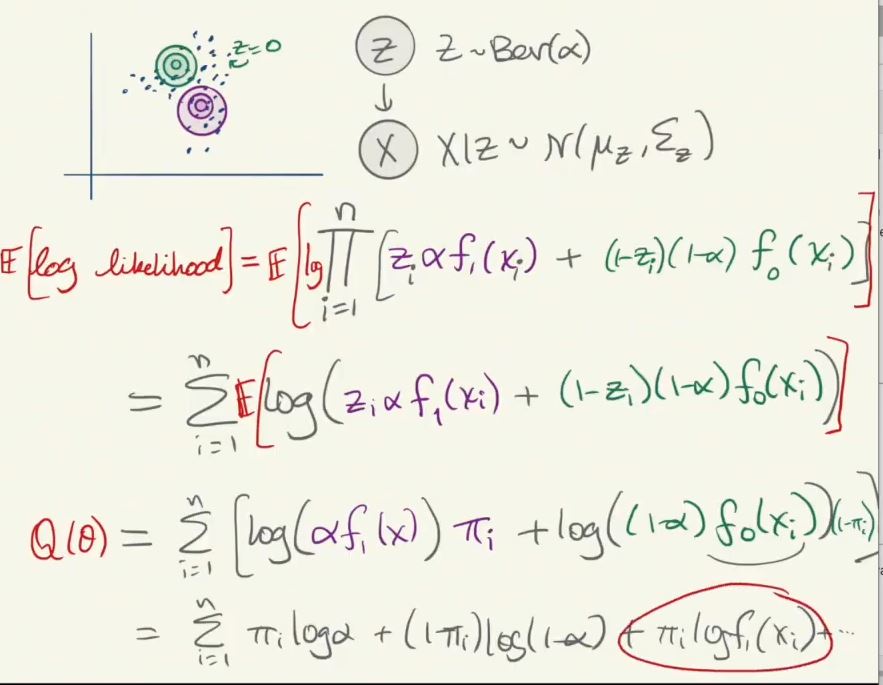 z=0
Z Z ~ Ber(α)
↓
X X|Z ~ N(μ_z, Σ_z)
E[log likelihood] = E[log ∏_{i=1}^{n} [z_i α f_1(x_i) + (1-z_i)(1-α) f_0(x_i)]]
= Σ_{i=1}^{n} E[log(z_i α f_1(x_i) + (1-z_i)(1-α) f_0(x_i))]
Q(θ) = Σ_{i=1}^{n} [log(α f_1(x)) π_i + log((1-α) f_0(x_i))(1-π_i)]
= Σ_{i=1}^{n} π_i log α + (1-π_i) log(1-α) + π_i log f_1(x_i) + ...